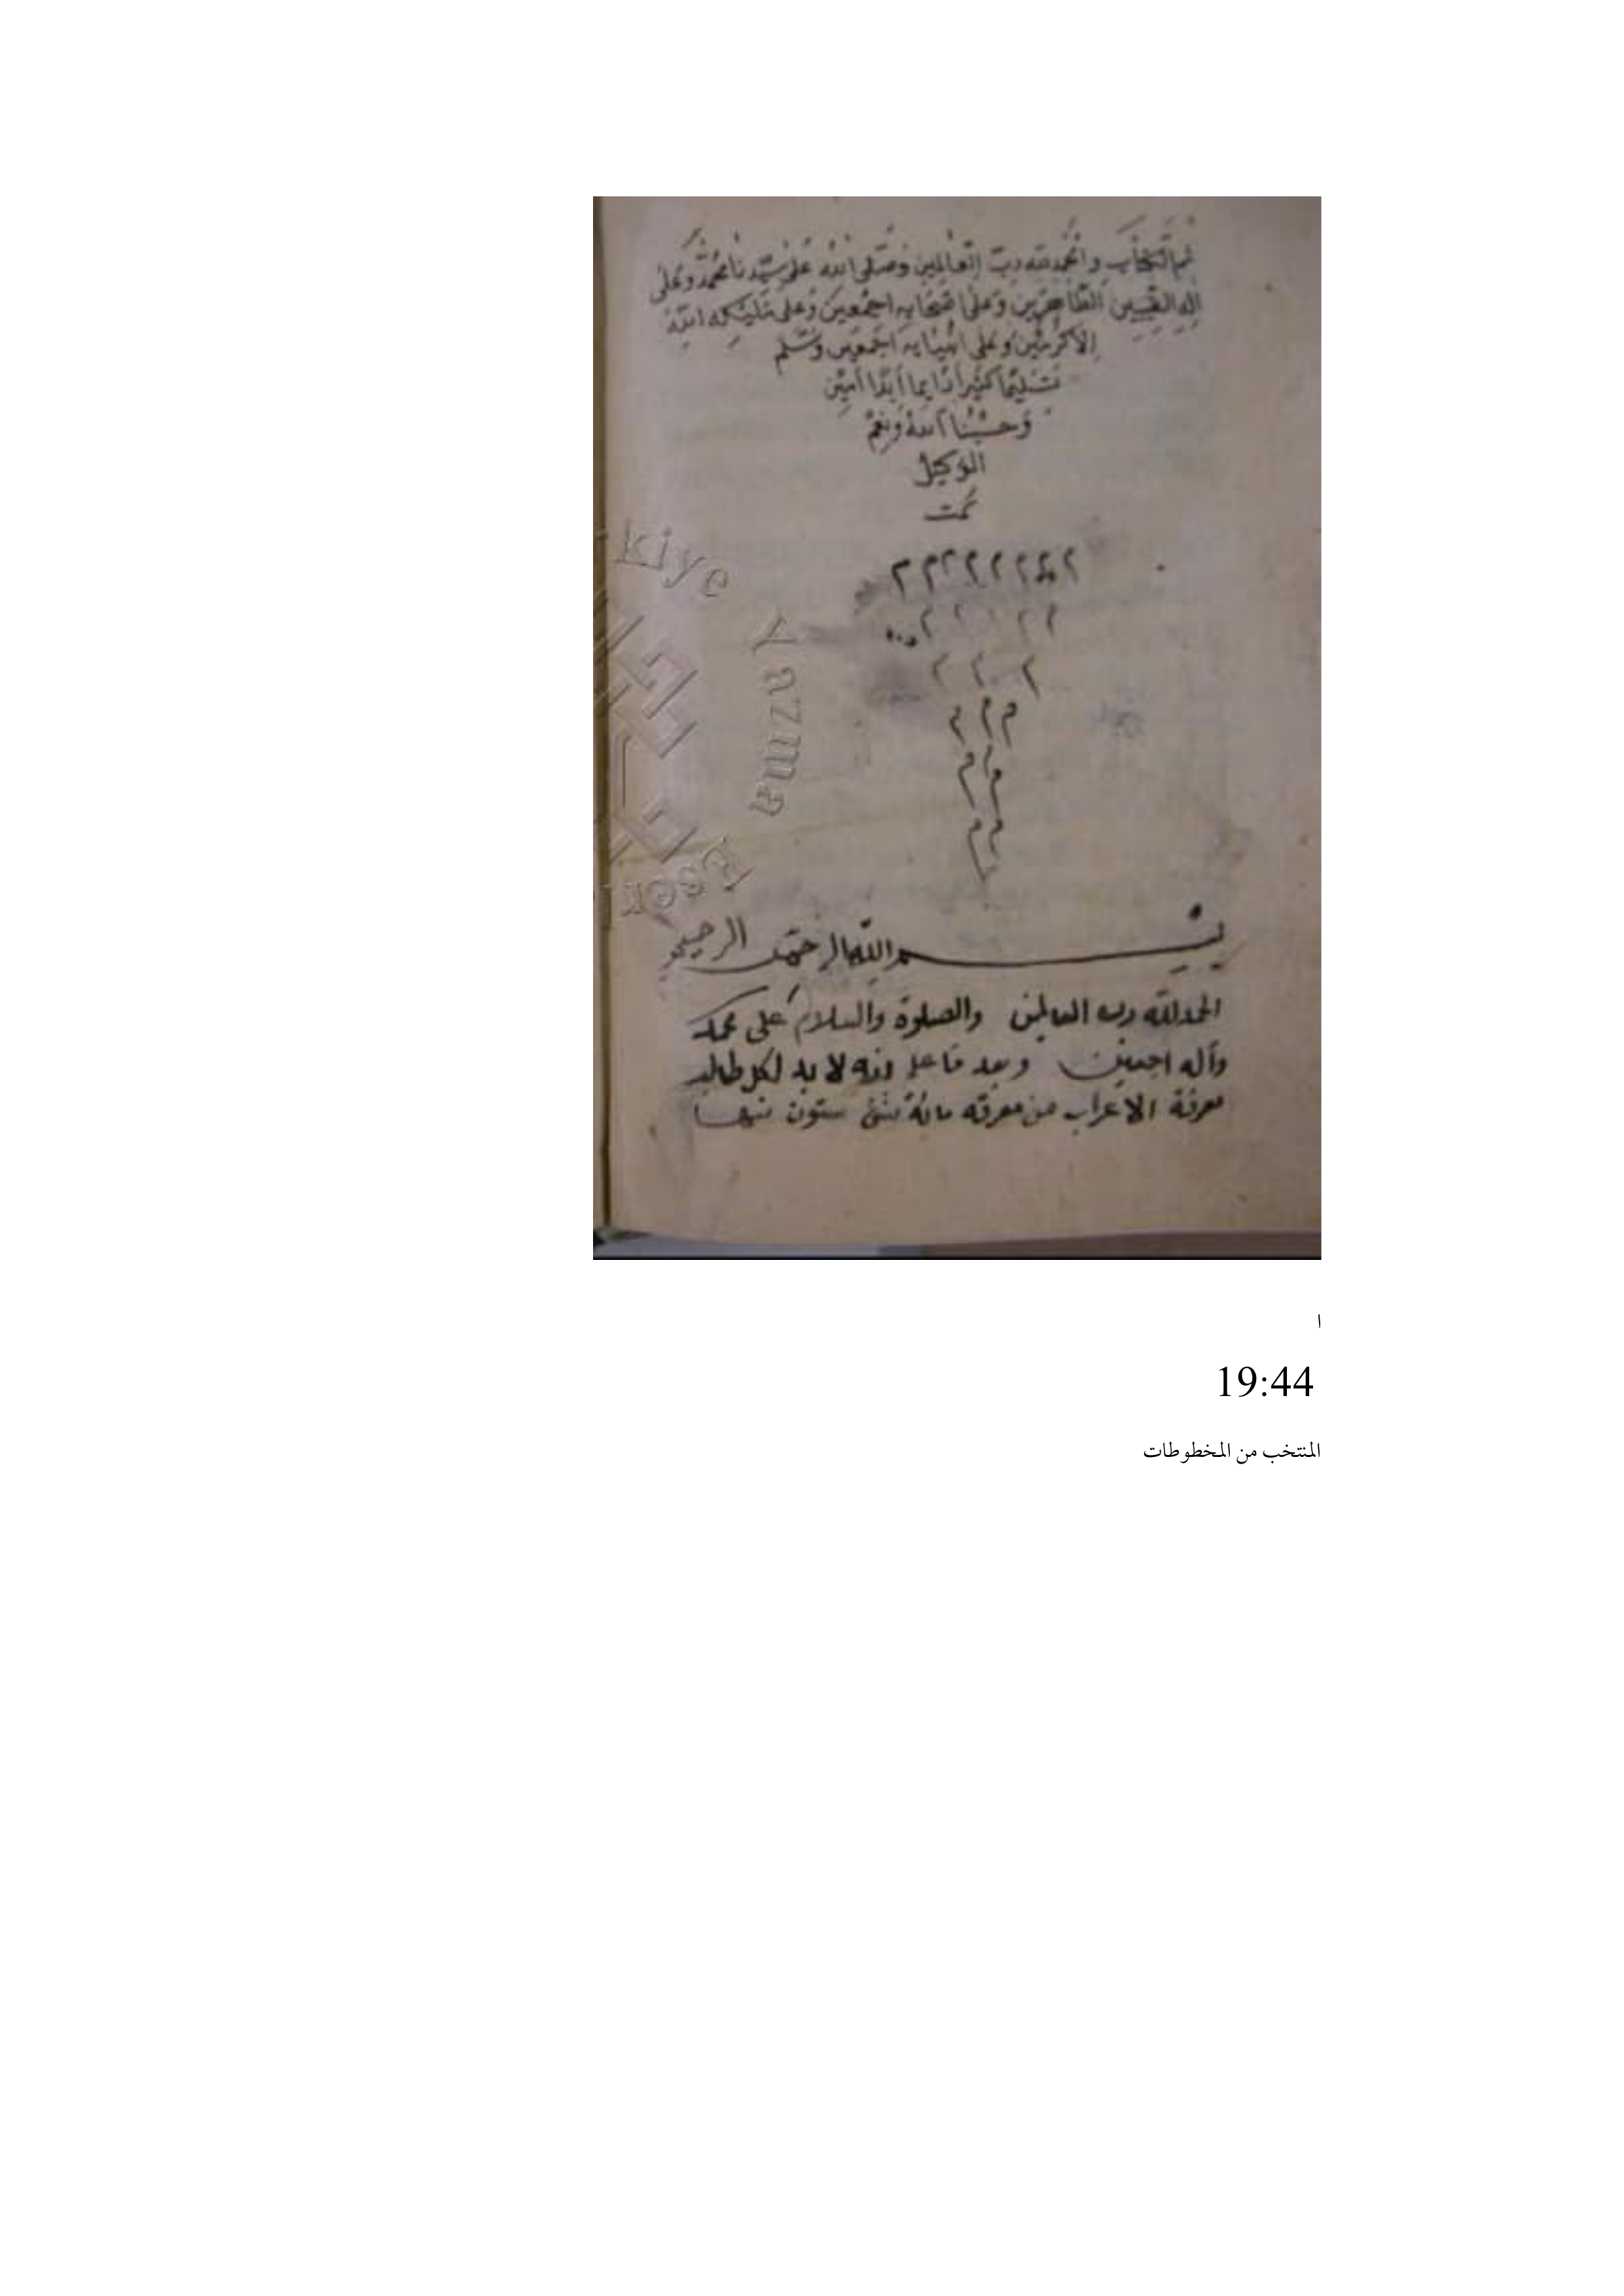 تم الكتاب والحمد لله رب العالمين وصلى الله على سيدنا محمد وعلى
اله الطيبين الطاهرين وعلى اصحابه اجمعين وعلى مليكه الله
الاكرمين وعلى انبيايه اجمعين وسلم
تسليما كثيرا دايما أبدا امين
وحسبنا الله ونعم
الوكيل
تمت
م م م م م م م م
م م م م م
م م م
م م م
م م
م م
kiye
Yazma
Eser
بسم الله الرحمن الرحيم
الحمد لله رب العالمين والصلوة والسلام على محمد
وآله اجمعين وبعد فاعلم انه لا بد لكل طالب
معرفة الاعراب من معرفة مائة شئ ستون منها
ا
19:44
المنتخب من المخطوطات